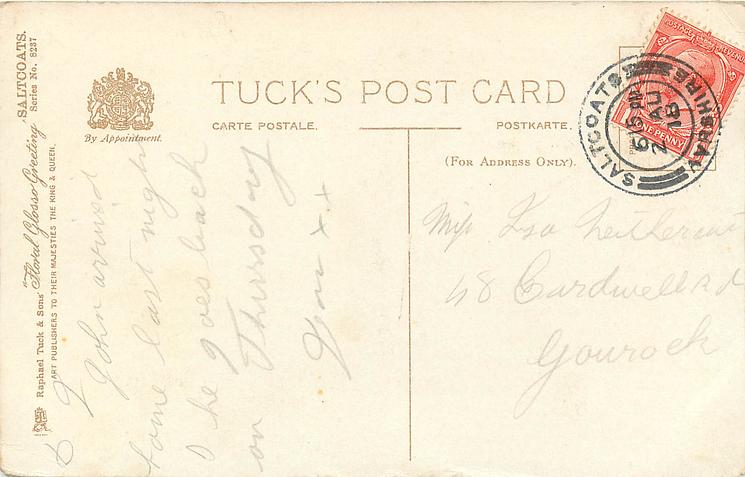 SALTCOATS.
Series No. 8237
Raphael Tuck & Sons' "Floral Glosso Greeting"
ART PUBLISHERS TO THEIR MAJESTIES THE KING & QUEEN.
By Appointment.
TUCK'S POST CARD
CARTE POSTALE.
POSTKARTE.
(For Address Only).
POSTAGE REVENUE
ONE PENNY
SALTCOATS
AYRSHIRE
AU
John arrived
home last night
he goes back
on Thursday
x x
Miss Isa
48 Cardwell Rd
Gourock